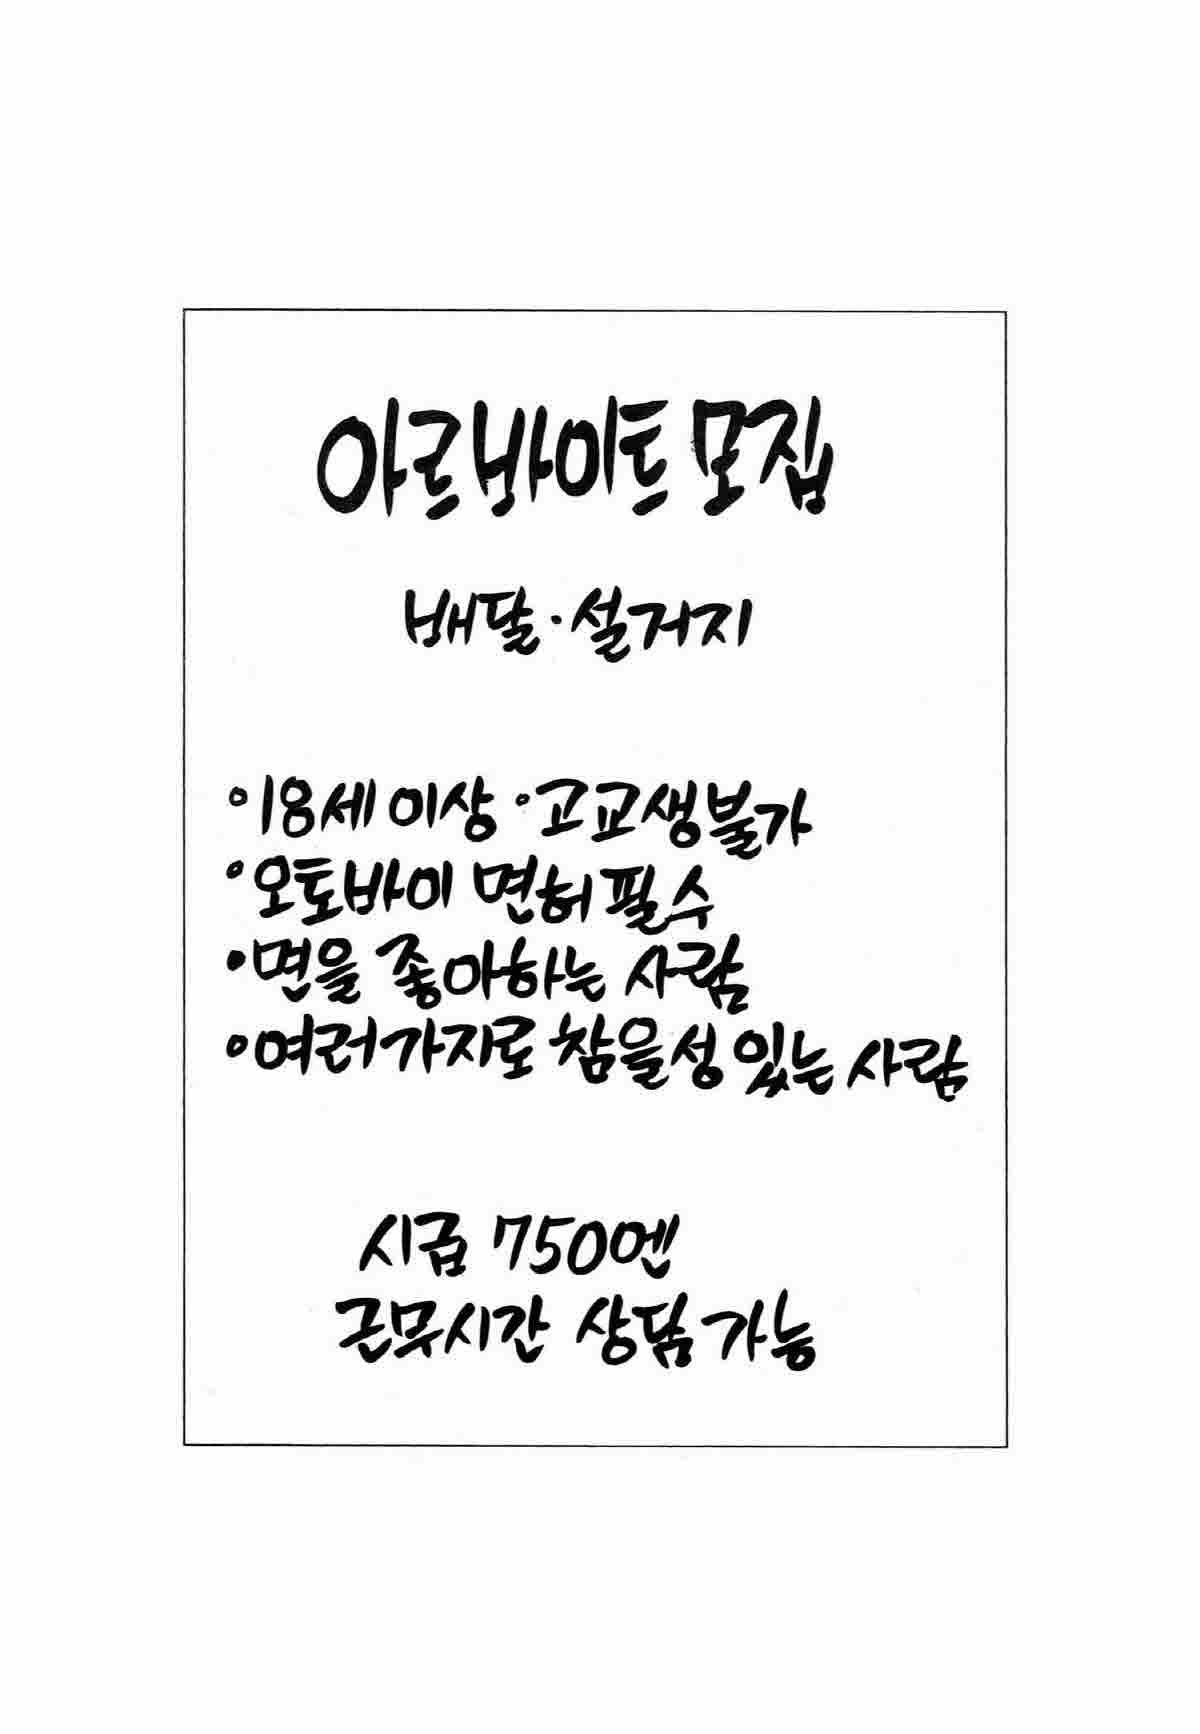 아르바이트 모집
배달·설거지
·18세 이상·고교생불가
·오토바이 면허 필수
·면을 좋아하는 사람
·여러가지로 참을성 있는 사람
시급 750엔
근무시간 상담 가능